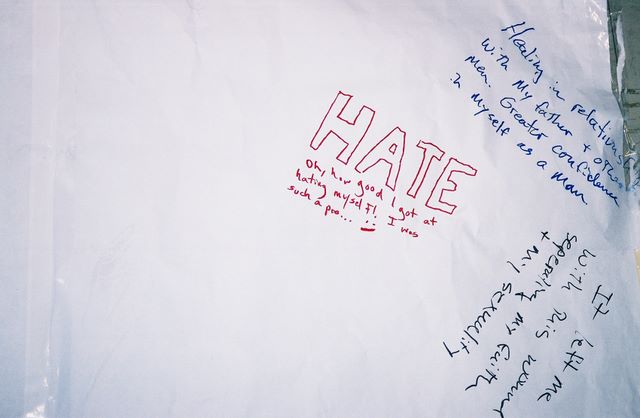 HATE
Oh, how good I got at
hating myself! I was
such a pro...
Healing in relation
with my father + other
men. Greater confidence
in myself as a man
It left me
with this wound
seperating my Faith
+ my sexuality